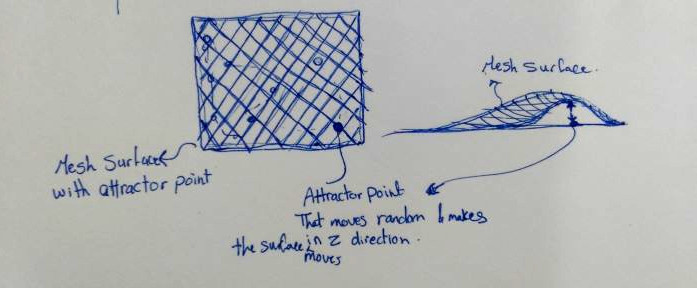 Mesh Surface.
Mesh Surface
with attractor point
Attractor Point
That moves random & makes
the surface in Z direction.
moves